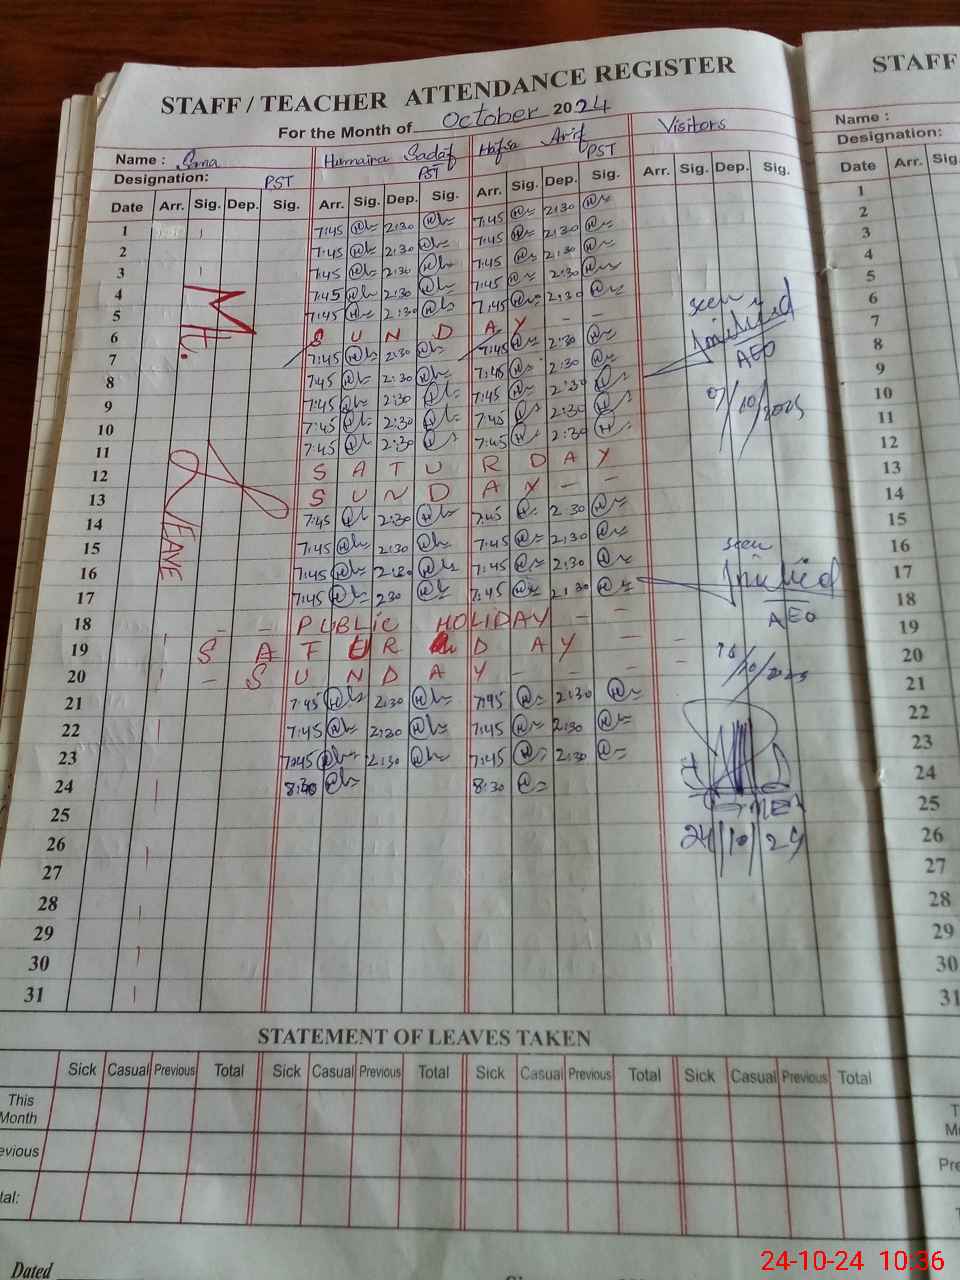 STAFF / TEACHER ATTENDANCE REGISTER
For the Month of October 2024
Name : Sana Humaira Sadaf Hafsa Arif Visitors
Designation: PST PST PST
Date Arr. Sig. Dep. Sig. Arr. Sig. Dep. Sig. Arr. Sig. Dep. Sig. Arr. Sig. Dep. Sig.
1 7:45 2:30 7:45 2:30
2 7:45 2:30 7:45 2:30
3 7:45 2:30 7:45 2:30
4 7:45 2:30 7:45 2:30
5 7:45 2:30 7:45 2:30 seen
6 S U N D A Y - -
7 7:45 2:30 7:45 2:30 AEO
8 7:45 2:30 7:45 2:30
9 7:45 2:30 7:45 2:30
10 7:45 2:30 7:45 2:30
11 7:45 2:30 7:45 2:30
12 S A T U R D A Y
13 S U N D A Y - -
14 7:45 2:30 7:45 2:30
15 7:45 2:30 7:45 2:30 seen
16 7:45 2:30 7:45 2:30
17 7:45 2:30 7:45 2:30
18 - - PUBLIC HOLIDAY - - AEO
19 S A T U R D A Y - - -
20 - S U N D A Y - - -
21 7:45 2:30 7:45 2:30
22 7:45 2:30 7:45 2:30
23 7:45 2:30 7:45 2:30
24 8:30 8:30
25
26 24/10/24
27
28
29
30
31
Mt.
LEAVE
STATEMENT OF LEAVES TAKEN
Sick Casual Previous Total Sick Casual Previous Total Sick Casual Previous Total Sick Casual Previous Total
This
Month
evious
tal:
Dated
STAFF
Name :
Designation:
Date Arr. Sig.
1
2
3
4
5
6
7
8
9
10
11
12
13
14
15
16
17
18
19
20
21
22
23
24
25
26
27
28
29
30
31
T
Mo
Pre
24-10-24 10:36